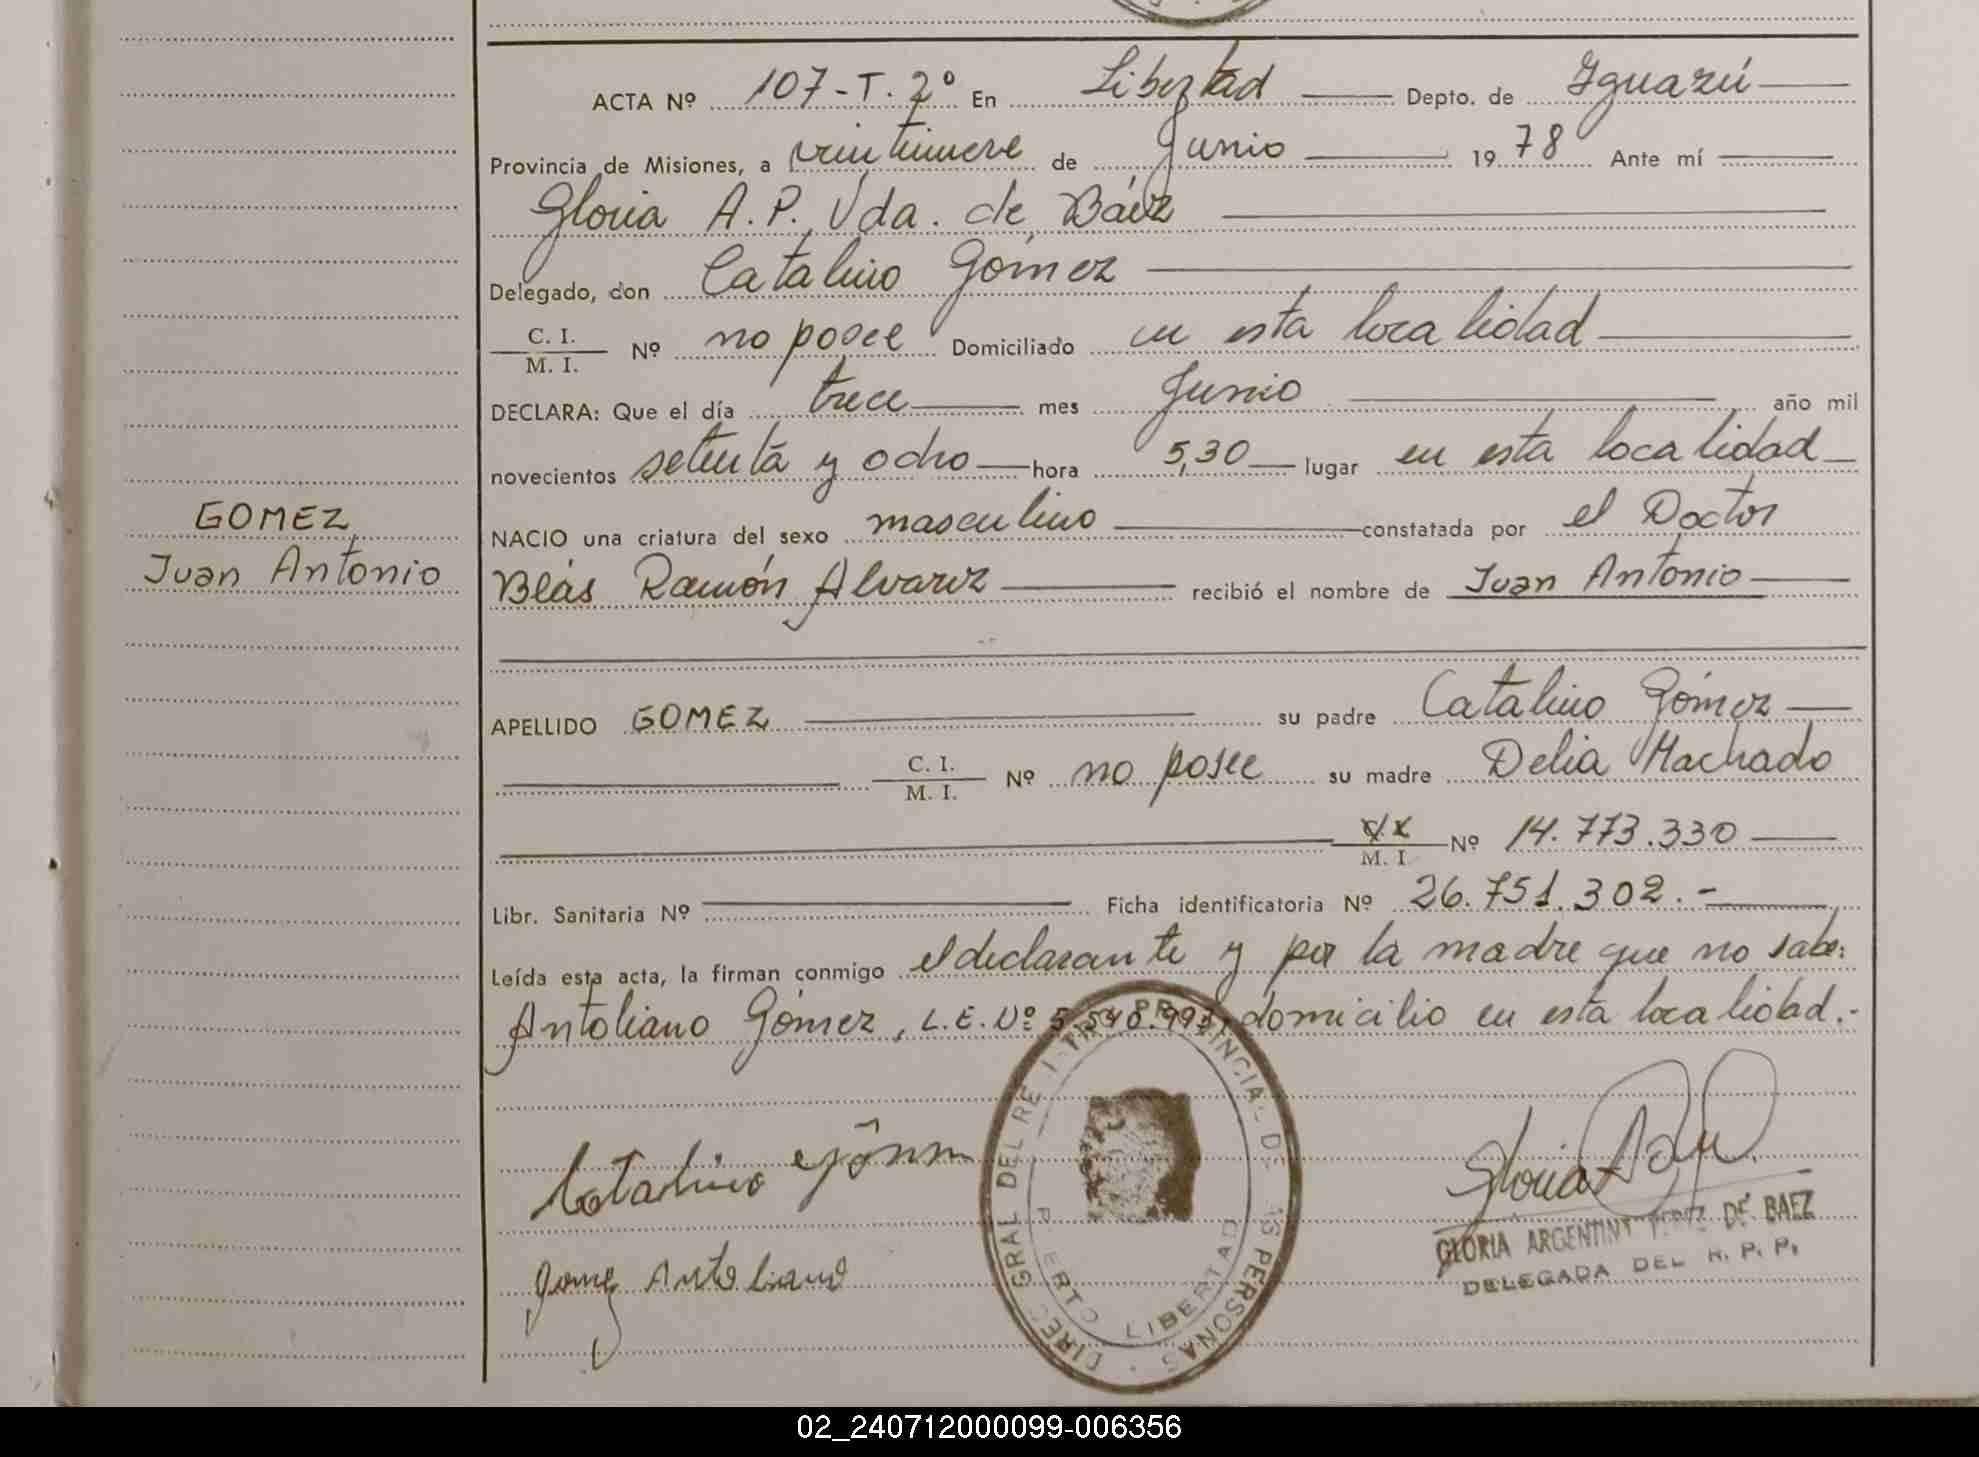 ACTA Nº 107-T. 2º En Libertad Depto. de Iguazú
Provincia de Misiones, a veintinueve de Junio 1978 Ante mí
Gloria A. P. Vda. de Báez
Delegado, don Catalino Gómez
C. I. / M. I. Nº no posee Domiciliado en esta localidad
DECLARA: Que el día trece mes Junio año mil
novecientos setenta y ocho hora 5,30 lugar en esta localidad
NACIO una criatura del sexo masculino constatada por el Doctor
Blás Ramón Alvarez recibió el nombre de Juan Antonio
GOMEZ
Juan Antonio
APELLIDO GOMEZ su padre Catalino Gómez
C. I. / M. I. Nº no posee su madre Delia Machado
M. I Nº 14.773.330
Libr. Sanitaria Nº Ficha identificatoria Nº 26.751.302.-
Leída esta acta, la firman conmigo el declarante y por la madre que no sabe:
Antoliano Gómez, L.E. Nº domicilio en esta localidad.-
Catalino Gómez
Gomez Antoliano
GRAL DEL PROVINCIAL PERSONAS
LIBERTAD
Gloria
GLORIA ARGENTINA PEREZ DE BAEZ
DELEGADA DEL R. P. P.
02_240712000099-006356